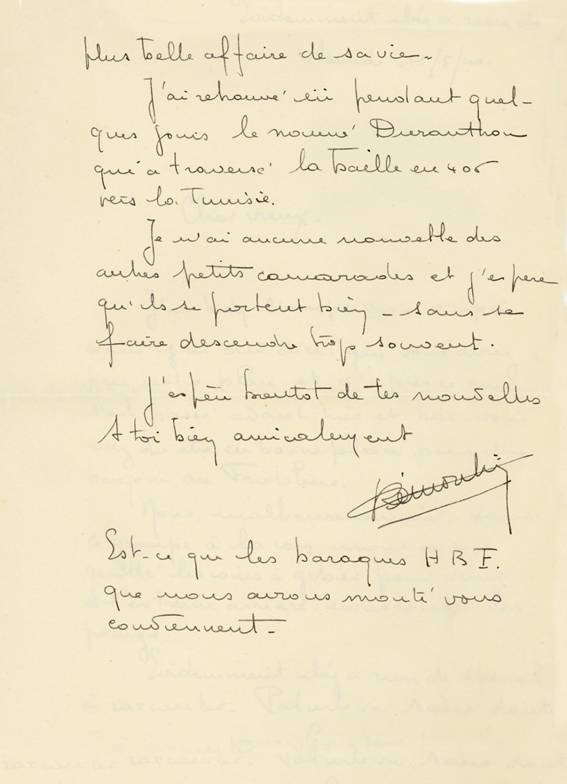 plus belle affaire de sa vie.
J'ai retrouvé ici pendant quel-
ques jours le nommé Duranthon
qui a traversé la baille en 406
vers la Tunisie.
Je n'ai aucune nouvelle des
autres petits camarades et j'espère
qu'ils se portent bien - sans se
faire descendre trop souvent.
J'espère bientot de tes nouvelles
A toi bien amicalement
Est-ce que les baraques H B F.
que nous avons monté vous
conviennent-